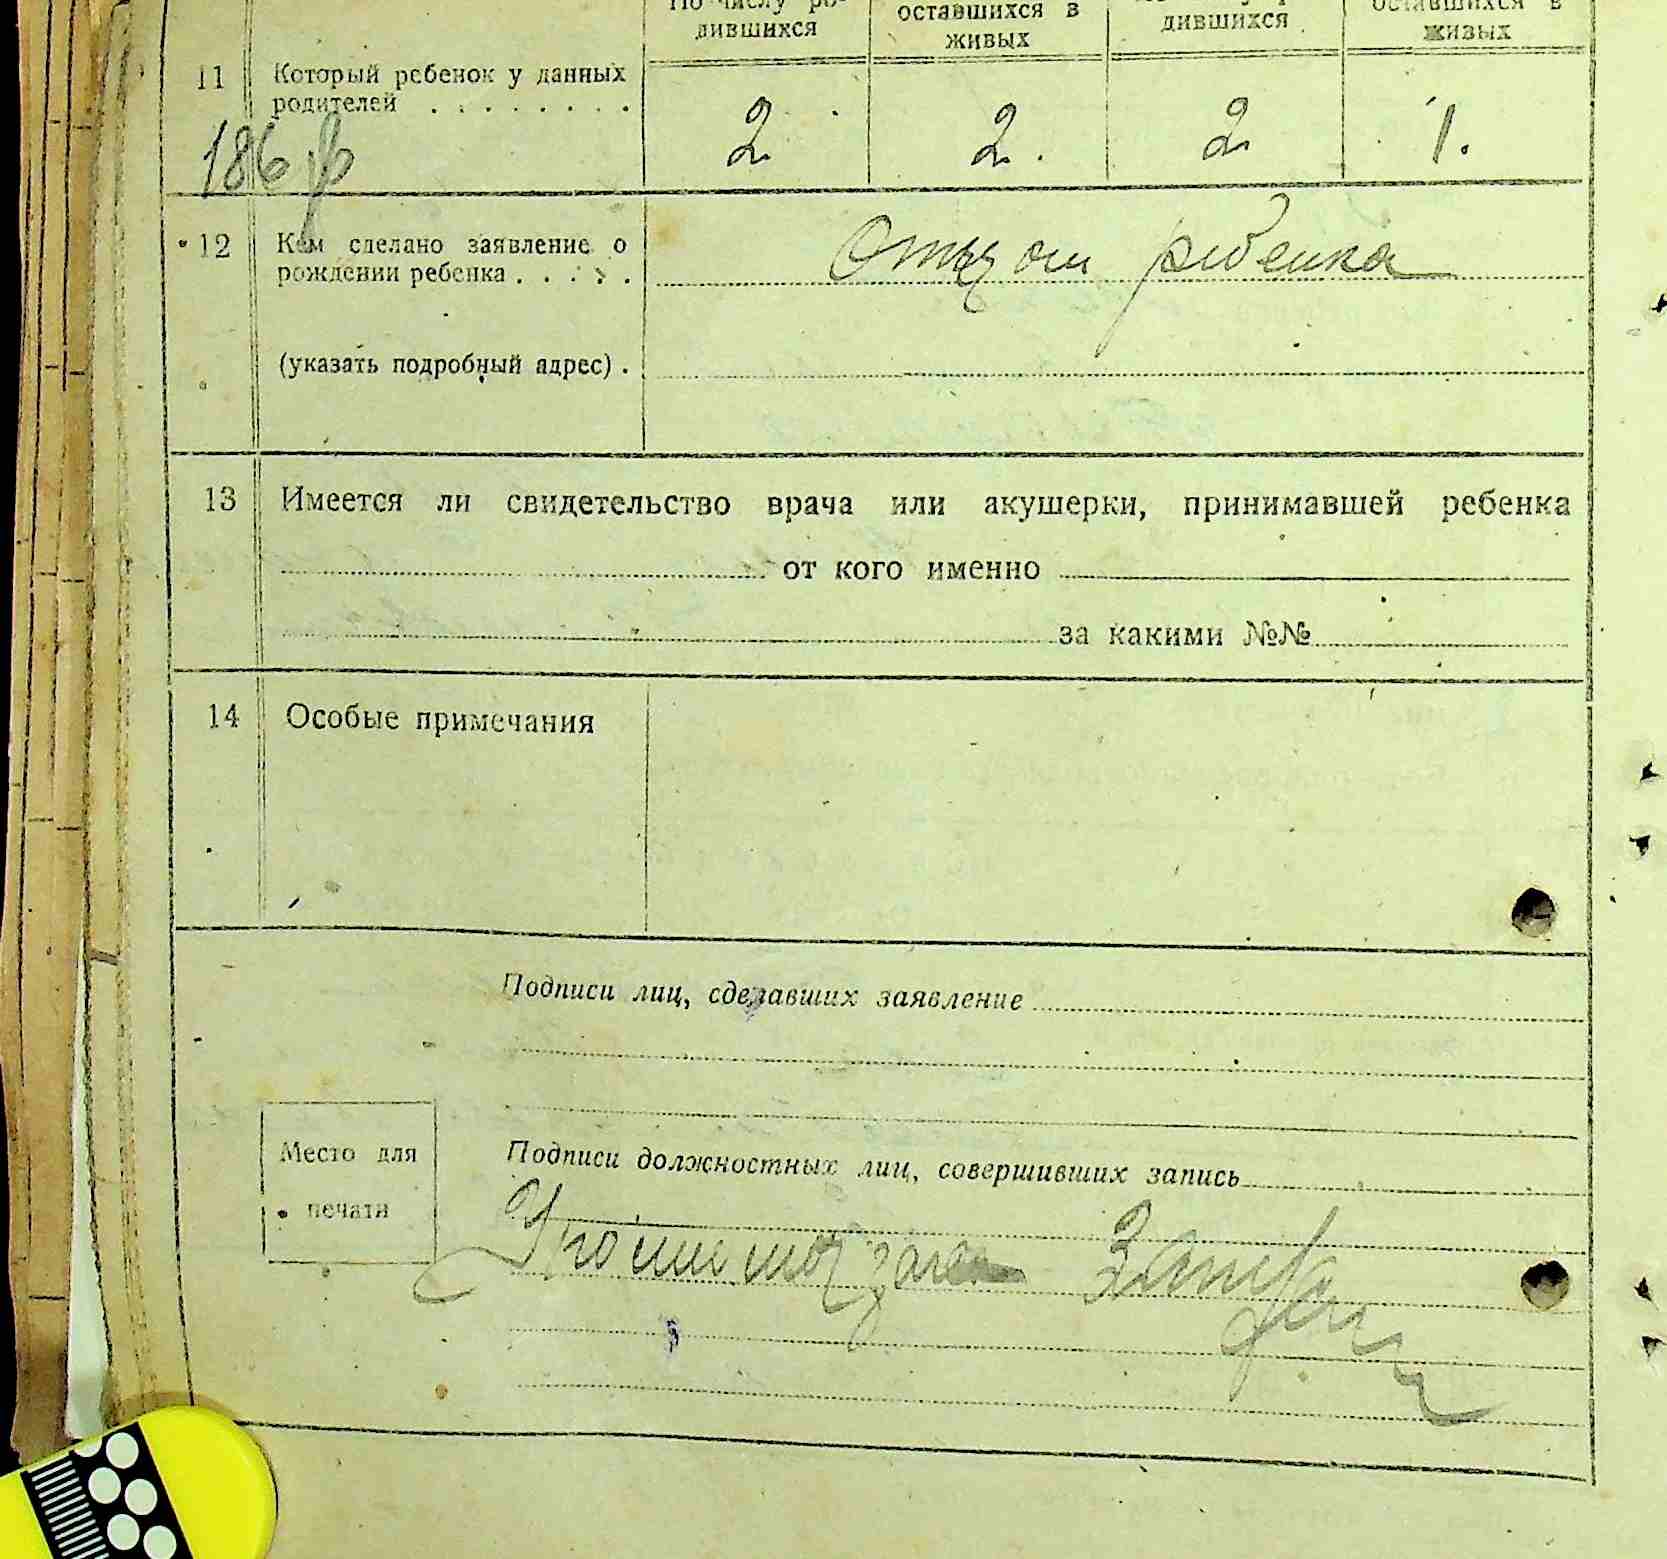 По числу ро-
дившихся
оставшихся в
живых
дившихся
оставшихся в
живых
11 Который ребенок у данных
родителей . . . . . . . .
2 2. 2 1.
186
12 Кем сделано заявление о
рождении ребенка . . . . .
Отцом ребенка
(указать подробный адрес) .
13 Имеется ли свидетельство врача или акушерки, принимавшей ребенка
от кого именно
за какими №№
14 Особые примечания
Подписи лиц, сделавших заявление
Место для
печати
Подписи должностных лиц, совершивших запись